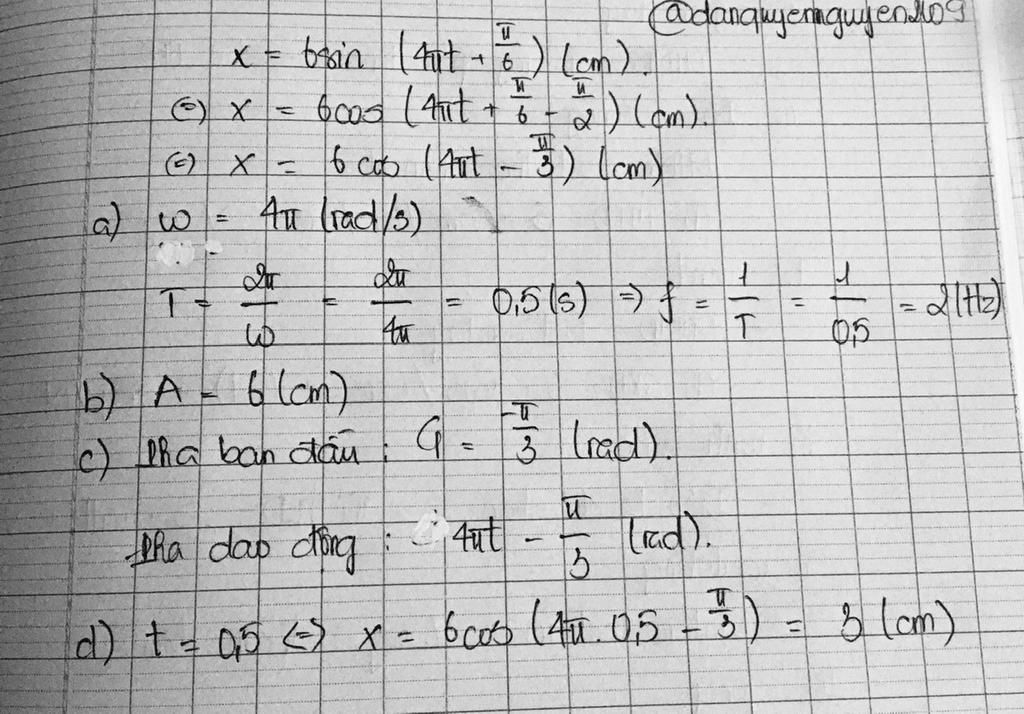 @danquyennguyen2109
x = 6sin (4πt + π/6) (cm).
(=) x = 6cos (4πt + π/6 - π/2) (cm).
(=) x = 6cos (4πt - π/3) (cm)
a) ω = 4π (rad/s)
T = 2π/ω = 2π/4π = 0,5 (s) => f = 1/T = 1/0,5 = 2 (Hz)
b) A = 6 (cm)
c) Pha ban đầu : φ = -π/3 (rad).
Pha dao động : 4πt - π/3 (rad).
d) t = 0,5 <=> x = 6cos (4π. 0,5 - π/3) = 3 (cm)